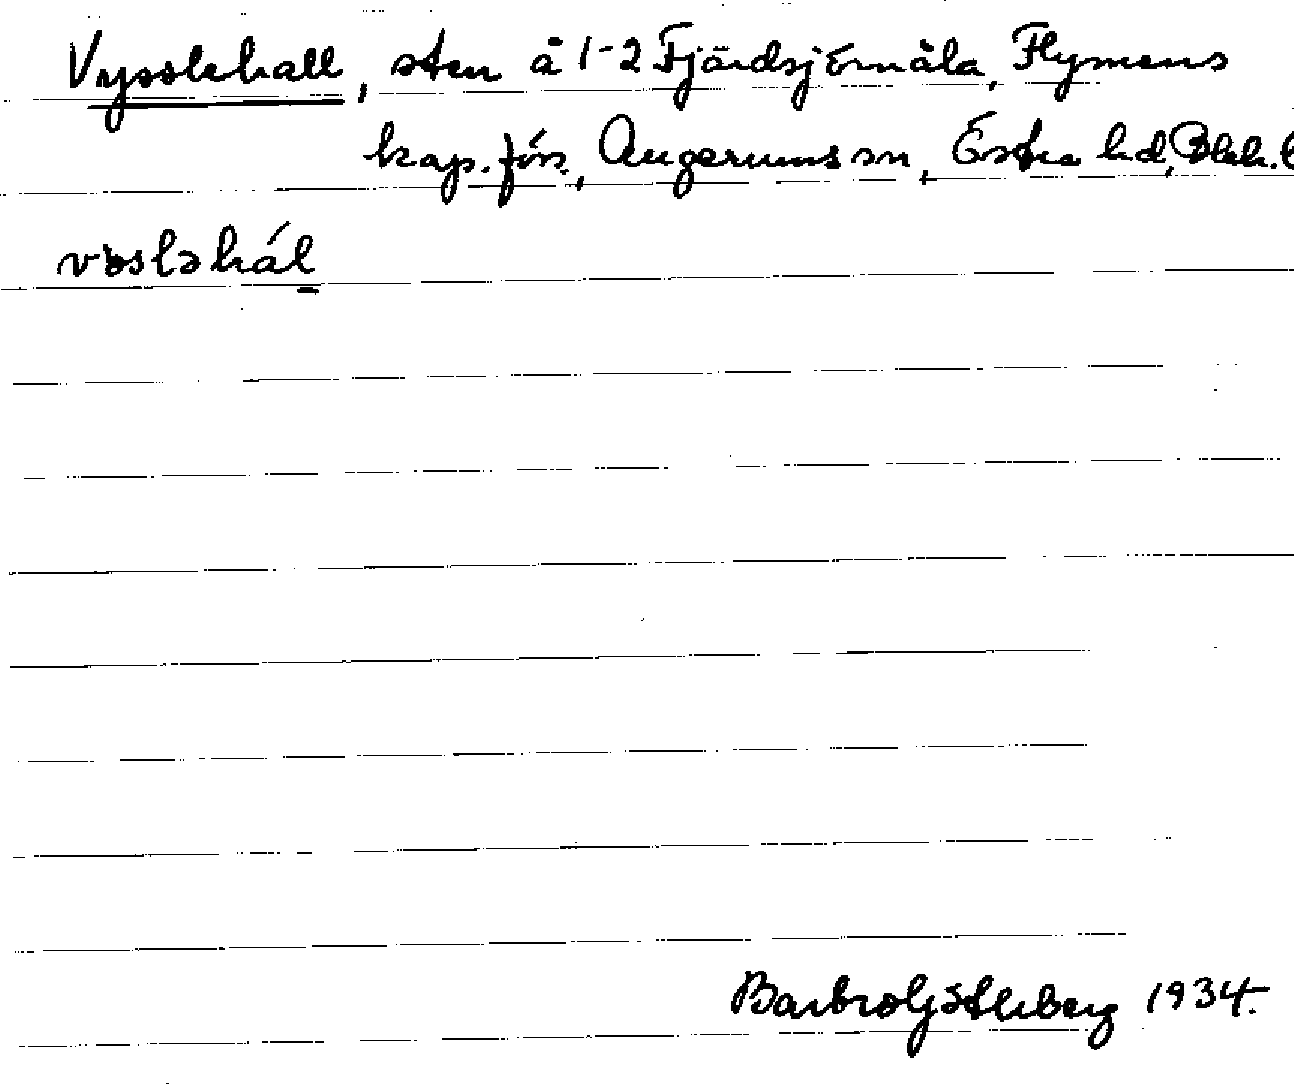 Vysslehall, sten å 1-2 Fjärdsjömåla, Flymens
kap. förs., Augerums sn, Östra hd, Blek. l
vəsləhál
Barbro Ljstkberg 1934.